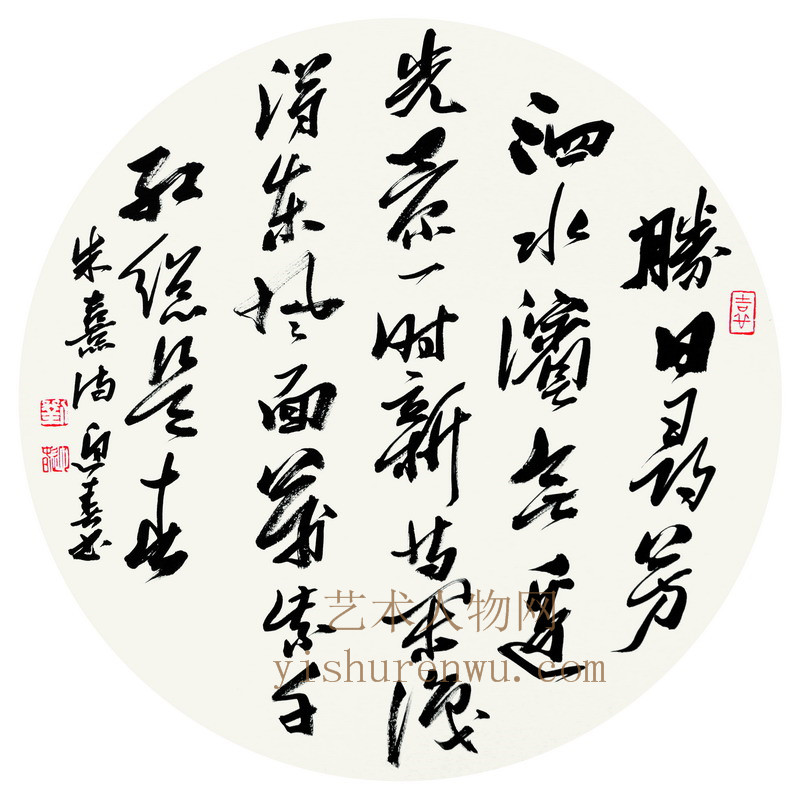 勝日尋芳
泗水濱無邊
光景一時新等閑識
得東風面萬紫千
紅總是春
朱熹詩 書
艺术人物网
yishurenwu.com